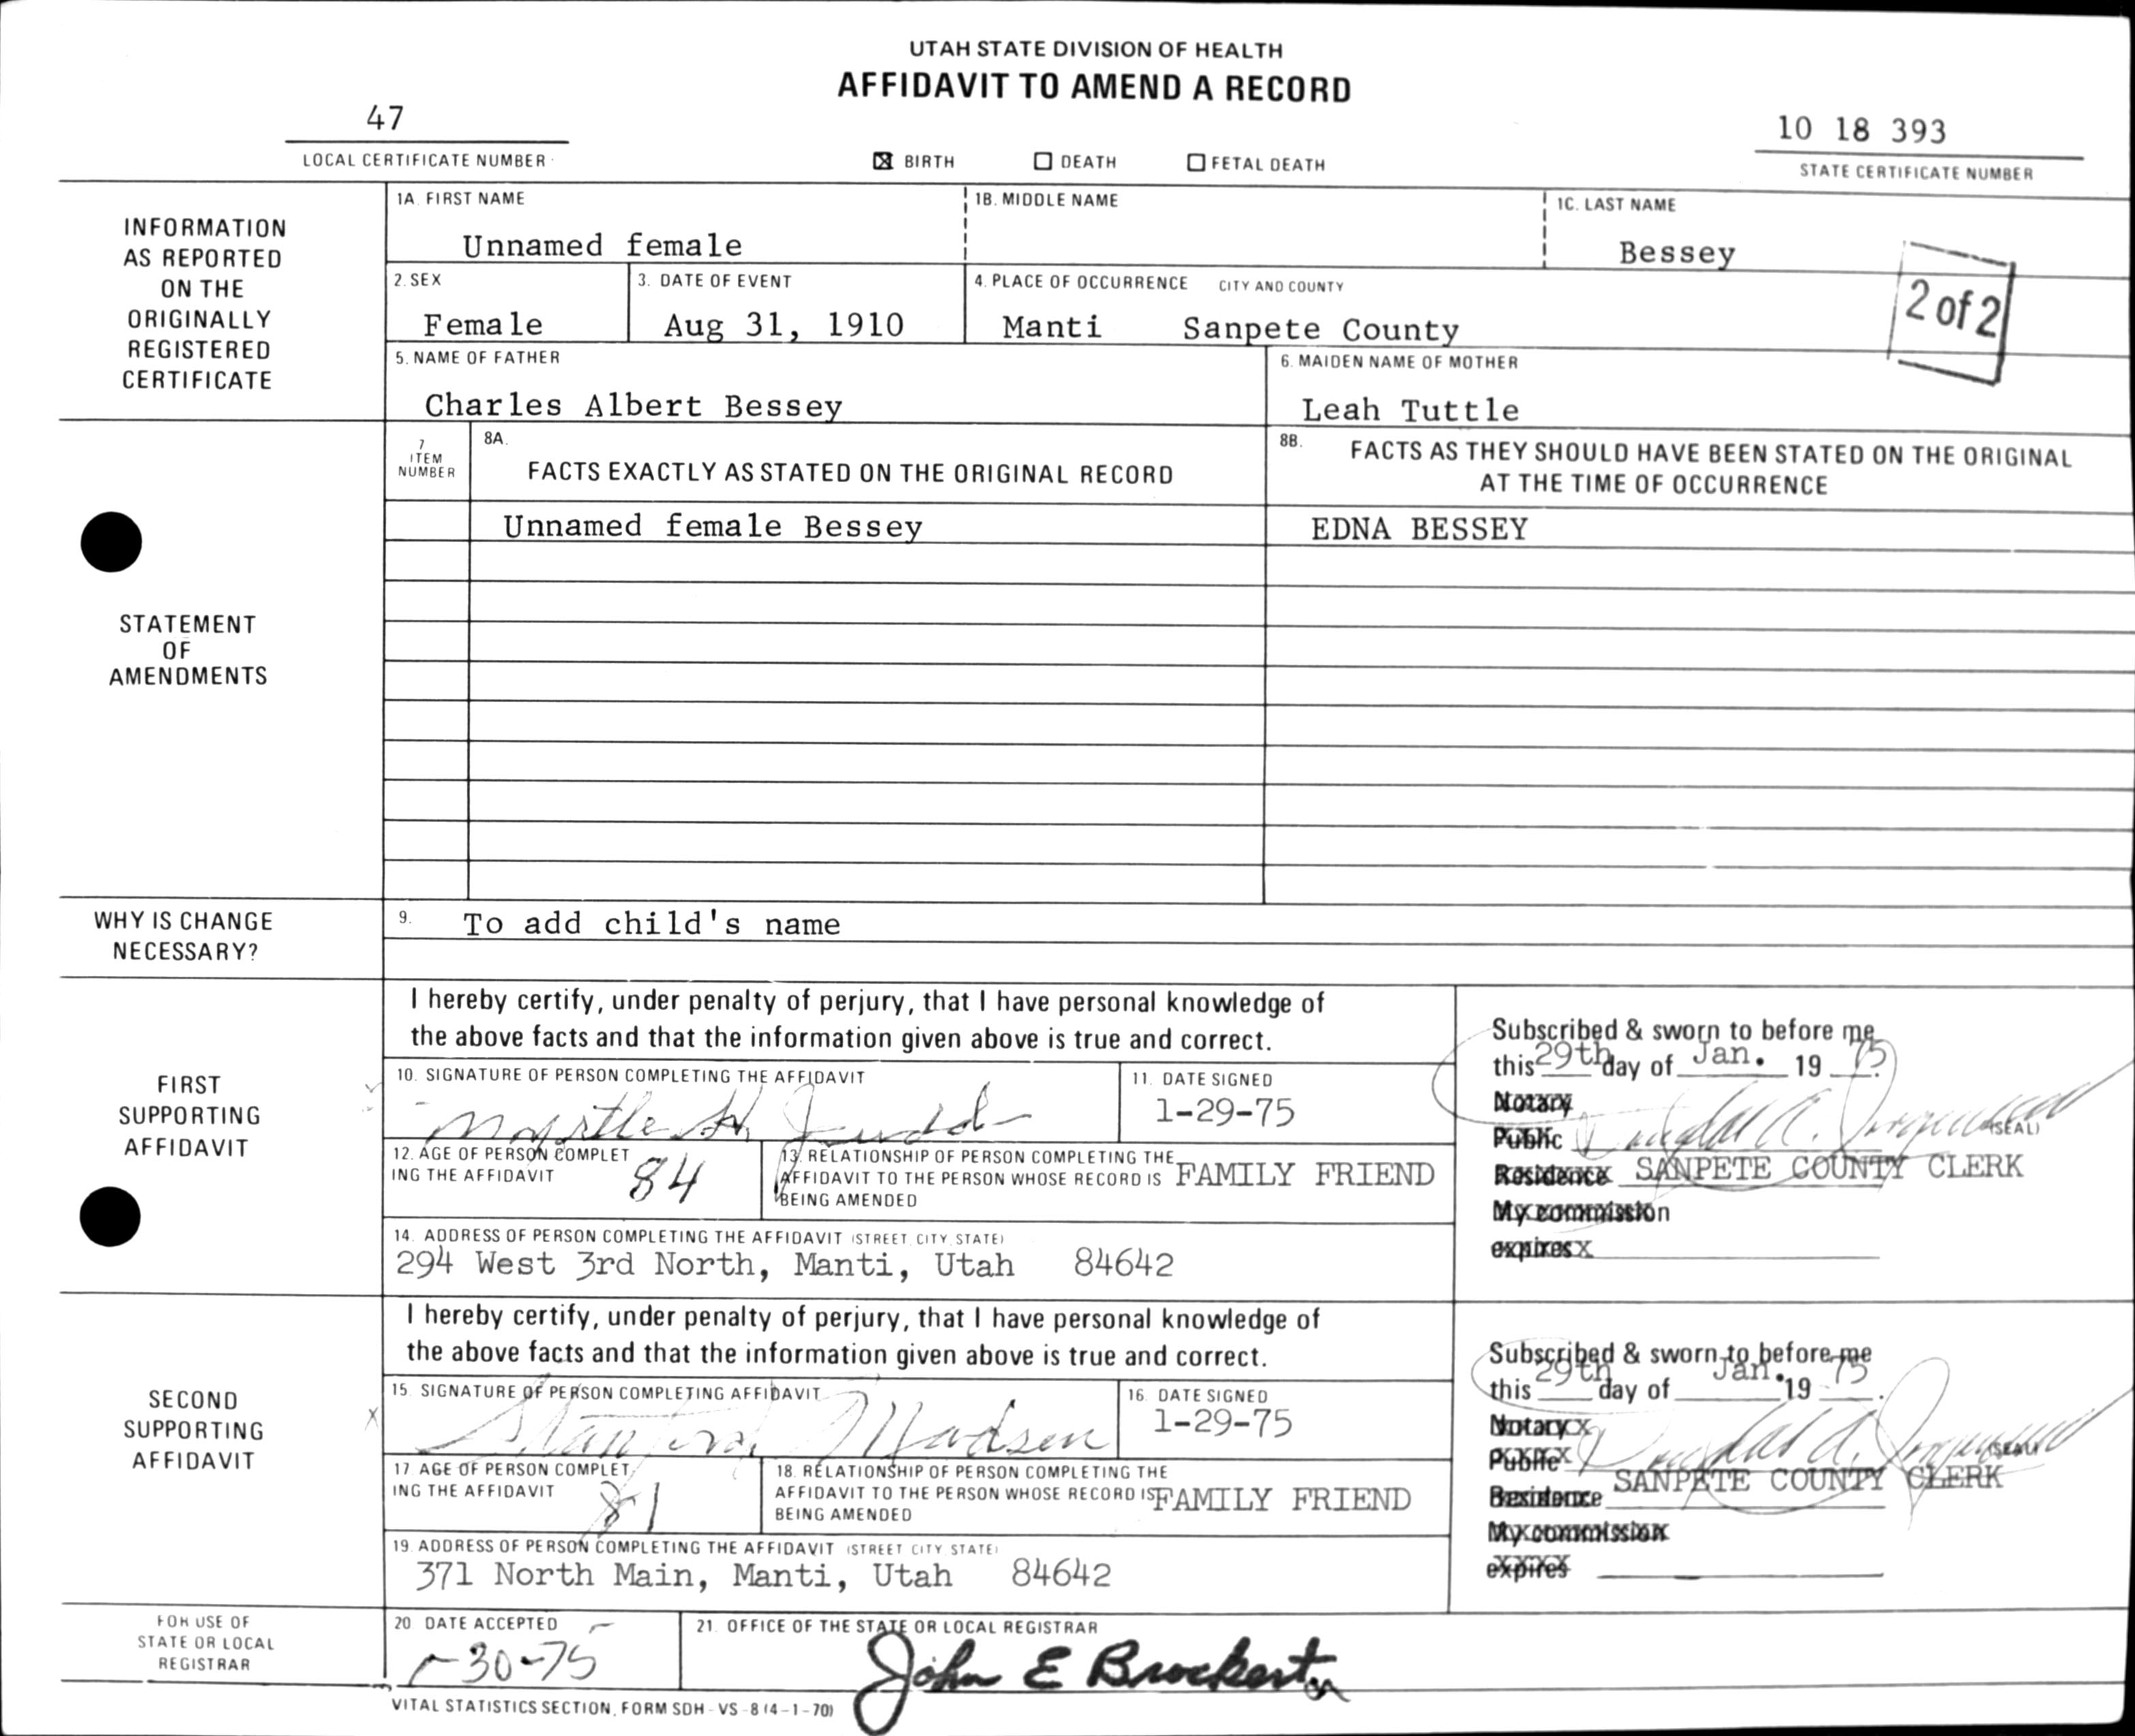 UTAH STATE DIVISION OF HEALTH
AFFIDAVIT TO AMEND A RECORD
47
LOCAL CERTIFICATE NUMBER
☒ BIRTH ☐ DEATH ☐ FETAL DEATH
10 18 393
STATE CERTIFICATE NUMBER
INFORMATION
AS REPORTED
ON THE
ORIGINALLY
REGISTERED
CERTIFICATE
1A. FIRST NAME 1B. MIDDLE NAME 1C. LAST NAME
Unnamed female Bessey
2. SEX 3. DATE OF EVENT 4. PLACE OF OCCURRENCE CITY AND COUNTY
Female Aug 31, 1910 Manti Sanpete County
2 of 2
5. NAME OF FATHER 6. MAIDEN NAME OF MOTHER
Charles Albert Bessey Leah Tuttle
STATEMENT
OF
AMENDMENTS
7
ITEM
NUMBER
8A.
FACTS EXACTLY AS STATED ON THE ORIGINAL RECORD
8B. FACTS AS THEY SHOULD HAVE BEEN STATED ON THE ORIGINAL
AT THE TIME OF OCCURRENCE
Unnamed female Bessey EDNA BESSEY
WHY IS CHANGE
NECESSARY?
9. To add child's name
FIRST
SUPPORTING
AFFIDAVIT
I hereby certify, under penalty of perjury, that I have personal knowledge of
the above facts and that the information given above is true and correct.
10. SIGNATURE OF PERSON COMPLETING THE AFFIDAVIT 11. DATE SIGNED
Myrtle H. Judd 1-29-75
12. AGE OF PERSON COMPLET
ING THE AFFIDAVIT 84
13. RELATIONSHIP OF PERSON COMPLETING THE
AFFIDAVIT TO THE PERSON WHOSE RECORD IS FAMILY FRIEND
BEING AMENDED
14. ADDRESS OF PERSON COMPLETING THE AFFIDAVIT (STREET CITY, STATE)
294 West 3rd North, Manti, Utah 84642
Subscribed & sworn to before me
this 29th day of Jan. 19 75.
Notary
Public (SEAL)
Residence SANPETE COUNTY CLERK
My commission
expires
SECOND
SUPPORTING
AFFIDAVIT
I hereby certify, under penalty of perjury, that I have personal knowledge of
the above facts and that the information given above is true and correct.
15. SIGNATURE OF PERSON COMPLETING AFFIDAVIT 16. DATE SIGNED
Madsen 1-29-75
17. AGE OF PERSON COMPLET
ING THE AFFIDAVIT 81
18. RELATIONSHIP OF PERSON COMPLETING THE
AFFIDAVIT TO THE PERSON WHOSE RECORD IS FAMILY FRIEND
BEING AMENDED
19. ADDRESS OF PERSON COMPLETING THE AFFIDAVIT (STREET CITY STATE)
371 North Main, Manti, Utah 84642
Subscribed & sworn to before me
this 29th day of Jan. 19 75.
Notary
Public (SEAL)
Residence SANPETE COUNTY CLERK
My commission
expires
FOR USE OF
STATE OR LOCAL
REGISTRAR
20 DATE ACCEPTED 21. OFFICE OF THE STATE OR LOCAL REGISTRAR
1-30-75 John E Brockert
VITAL STATISTICS SECTION, FORM SDH-VS-8 (4-1-70)